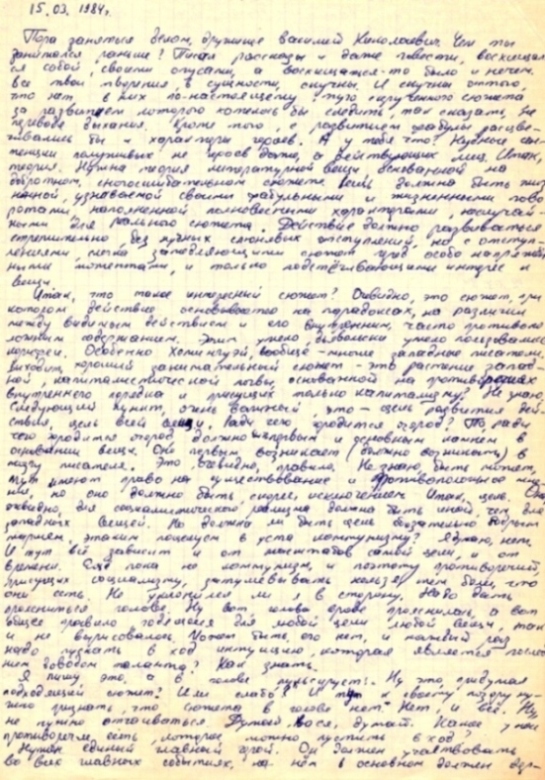 15.03.1984г.
Пора заняться делом, дружище Василий Николаевич. Чем ты
занимался раньше? Писал рассказы и даже повести, восхищал-
ся собой, своими опусами, а восхищаться-то было и нечем.
Все твои творения в сущности, скучны. И скучны оттого,
что нет в них по-настоящему круто закрученного сюжета
за развитием которого хотелось бы следить, так сказать, не
переводя дыхания. Кроме того, с развитием фабулы расцве-
чивались бы и характеры героев. А у тебя что? Нудные сен-
тенции полуживых не героев даже, а действующих лиц. Итак,
теория. Нужна теория литературной вещи основанной на
добротном, сногсшибательном сюжете. Вещь должна быть жиз
ненной, узнаваемой своими фабульными и жизненными пово
ротами наполненной полновесными характерами, неслучай-
ными для реального сюжета. Действие должно развиваться
стремительно, без нужных отступлений, но с отступ-
лениями, слегка замедляющими сюжет перед особо напряжён
ными моментами, и только подстёгивающими интерес к
вещи.
Итак, что такое интересный сюжет? Очевидно, это сюжет, при
котором действие основывается на парадоксах, на различии
между видимым действием и его внутренним, часто противопо
ложным содержанием. Этим умело, дьявольски умело пользовались
Особенно Хемингуэй, вообще - многие западные писатели.
Выходит, хороший занимательный сюжет - это растение запад-
ной, капиталистической почвы, основанной на противоречиях
внутреннего порядка и присущих только капитализму? Не знаю.
Следующий пункт, очень важный, это - цель развития дей-
ствия, цель всей вещи. Ради чего городится огород? То ради
чего городится огород должно первым и основным камнем в
основании вещи. Оно первым возникает (должно возникать) в
мозгу писателя. Это, очевидно, правило. Не знаю, быть может,
тут имеют право на существование и противоположное мне-
ние, но оно должно быть, скорее, исключением. Итак, цель. Она
очевидно, для социалистического реализма должна быть иной, чем для
западных вещей. Но должна ли быть цель обязательно бодрым
маршем, этаким поцелуем в уста коммунизму? Я думаю, нет.
И тут всё зависит и от масштабов самой цели, и от
времени. Ещё пока не коммунизм, и поэтому противоречий,
присущих социализму, затушёвывать нельзя тем более, что
они есть. Не уклонился ли я в сторону. Надо дать
проясниться голове. Ну вот голова вроде прояснилась, а вот
общее правило годящееся для любой цели любой вещи, так
и не вырисовалось. Может быть, его нет, и каждый раз
надо пускать в ход интуицию, которая является послед
ним доводом таланта? Как знать.
Я пишу это, а в голове пульсирует: Ну что, придумал
подходящий сюжет? Или слабо? И тут к своему позору ну-
жно признать, что сюжета в голове нет. Нет, и всё. Ну
не нужно отчаиваться. Думай, Вася, думай. Какие у нас
противоречия есть, которые можно пустить в ход?
Нужен единый главный герой. Он должен участвовать
во всех главных событиях, на нём в основном должен дер-